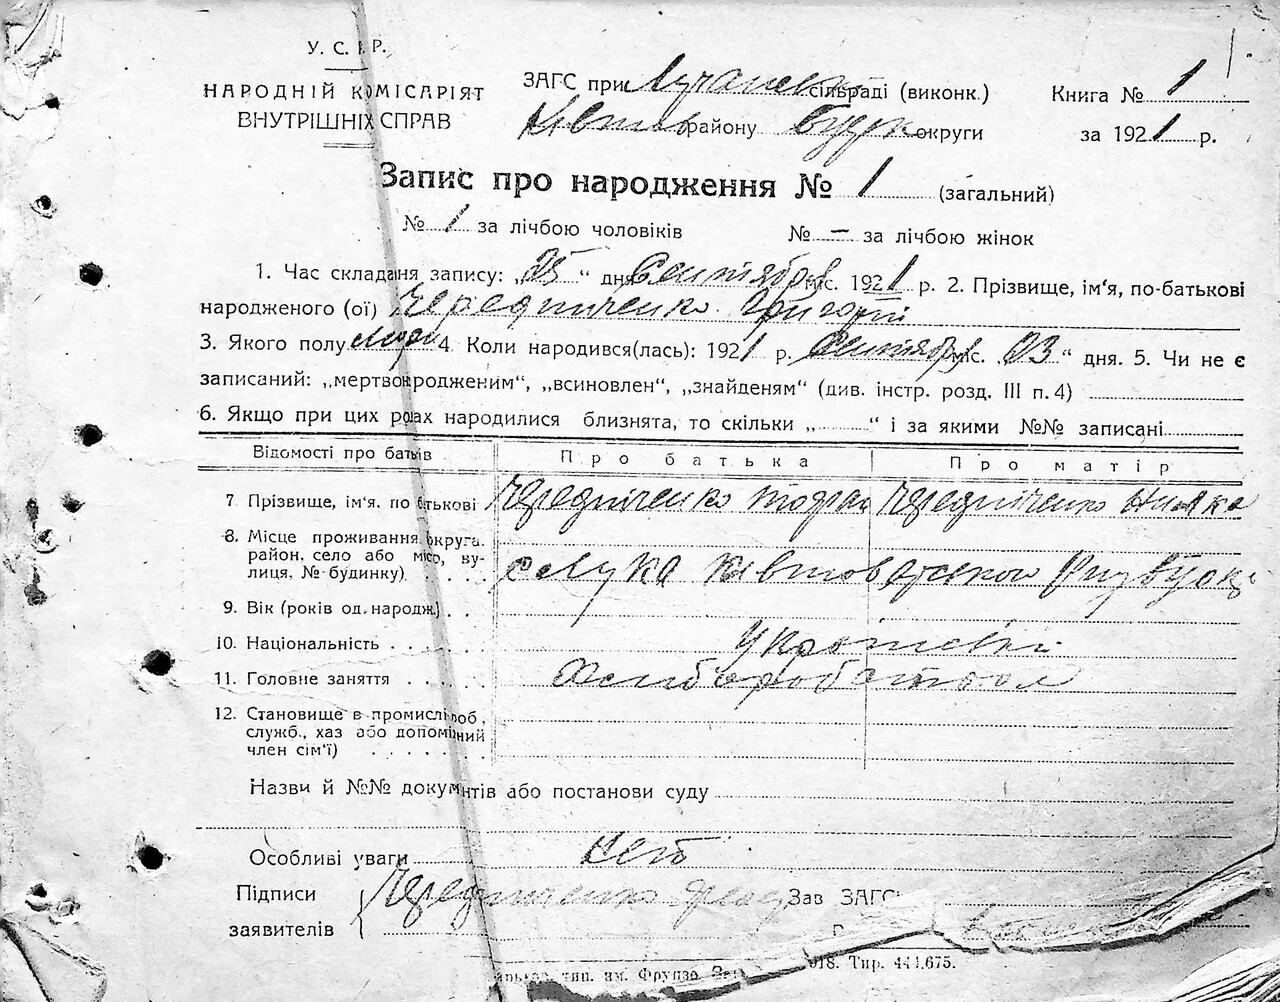 У. С. Р. Р.
НАРОДНІЙ КОМІСАРІЯТ
ВНУТРІШНІХ СПРАВ
ЗАГС при Лучанскій сільраді (виконк.)
району округи
Книга № 1
за 1921 р.
Запис про народження № 1 (загальний)
№ 1 за лічбою чоловіків № – за лічбою жінок
1. Час складання запису: „25“ дня Сентября міс. 1921 р. 2. Прізвище, ім'я, по-батькові
народженого (ої) Чередниченко Григорій
3. Якого полу 4. Коли народився(лась): 1921 р. Сентября міс. „03“ дня. 5. Чи не є
записаний: „мертвонародженим“, „всиновлен“, „знайденям“ (див. інстр. розд. III п. 4)
6. Якщо при цих родах народилися близнята, то скільки „ “ і за якими №№ записані
Відомості про батьків Про батька Про матір
7 Прізвище, ім'я, по батькові Чередніченко Чередніченко
8. Місце проживання округа.
район, село або місто, ву-
лиця, № будинку) с Лука
9. Вік (років од. народж.)
10. Національність
11. Головне заняття
12. Становище в промислі роб.
служб., хаз або допоміжний
член сім'ї)
Назви й №№ документів або постанови суду
Особливі уваги Нет
Підписи Чередниченко Зав ЗАГС
заявителів
тип. им. Фрунзе 918. Тир. 444.675.